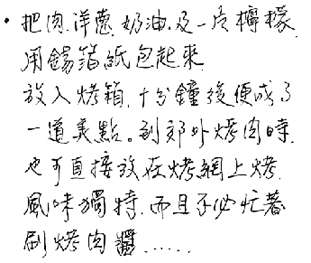 • 把肉.洋蔥.奶油.及一片檸檬.
用錫箔紙包起來.
放入烤箱.十分鐘後便成了
一道美點。到郊外烤肉時.
也可直接放在烤網上烤.
風味獨特.而且不必忙著
刷烤肉醬......